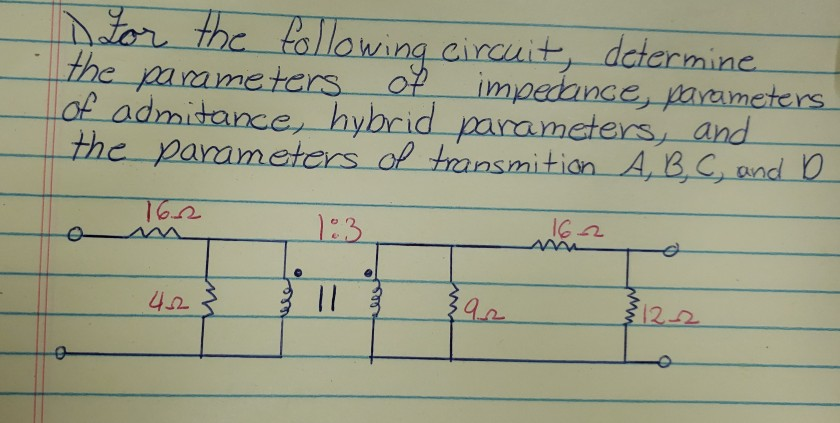 1) For the following circuit, determine
the parameters of impedance, parameters
of admitance, hybrid parameters, and
the parameters of transmition A, B, C, and D
16Ω 1:3 16Ω
4Ω 9Ω 12Ω